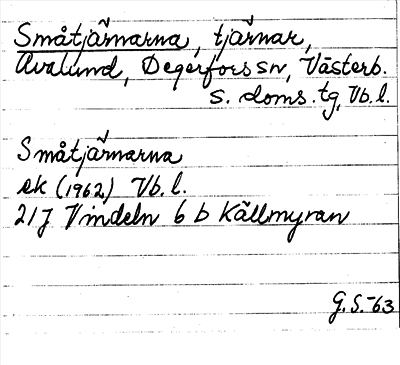 Småtjärnarna, tjärnar,
Avalund, Degerfors sn, Västerb.
s. doms. tg, Vb. l.
Småtjärnarna
ek (1962) Vb. l.
21J Vindeln 6 b Källmyran
G.S.-63